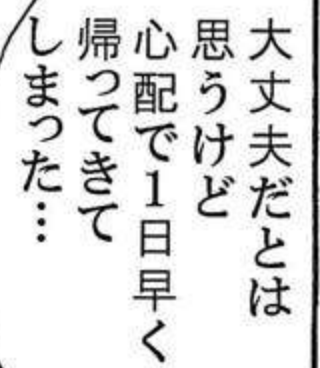 大丈夫だとは
思うけど
心配で1日早く
帰ってきて
しまった…